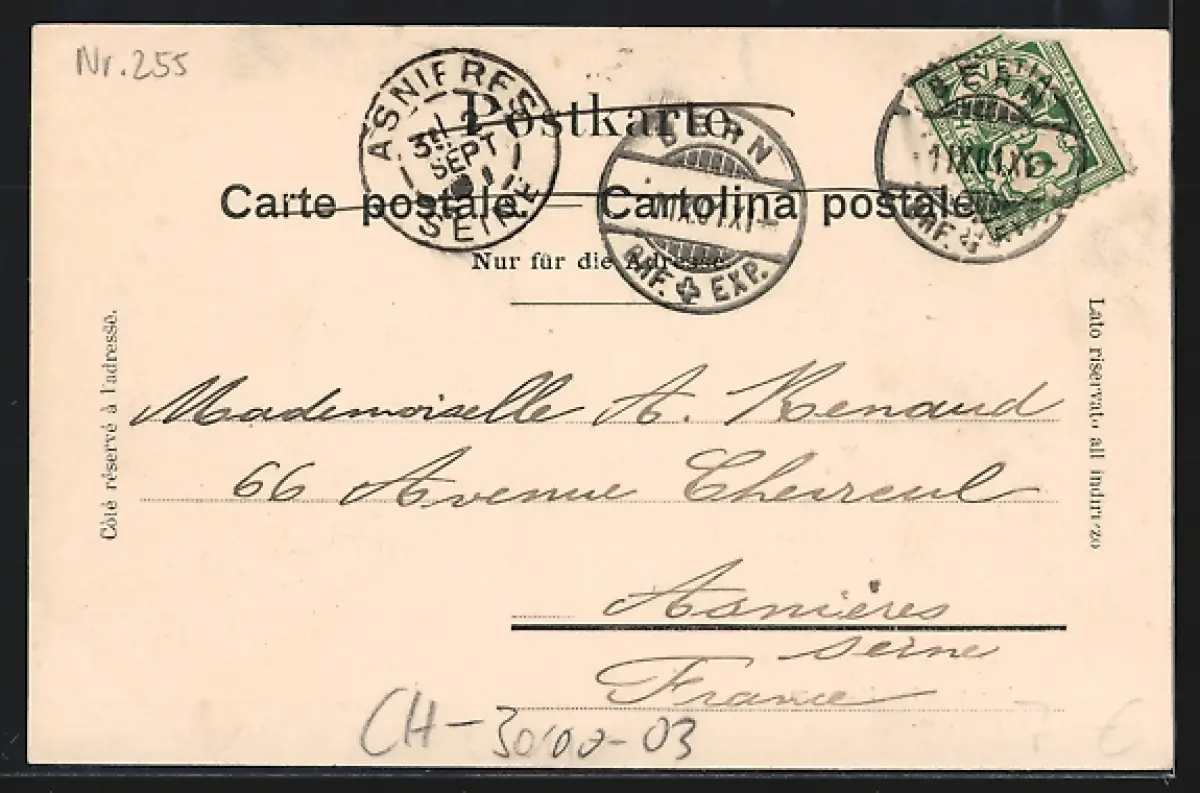 Nr. 255
ASNIERES
3E
SEPT
SEINE
Postkarte.
BERN
BRF. EXP.
HELVETIA
BERN
BRF.
Carte postale. — Cartolina postale.
Nur für die Adresse.
Côté réservé à l'adresse.
Lato riservato all indirizzo
Mademoiselle A. Renaud
66 Avenue Chevreul
Asnières
Seine
France
CH-3000-03